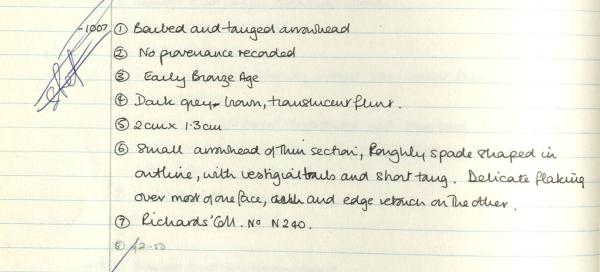 -1007 ① Barbed and tanged arrowhead
② No provenance recorded
③ Early Bronze Age
④ Dark grey-brown, translucent flint.
⑤ 2cm x 1.3cm
⑥ Small arrowhead of thin section, Roughly spade shaped in
outline, with vestigial barbs and short tang. Delicate flaking
over most of one face, and edge retouch on the other.
⑦ Richards' Coll. No N240.
⑧ £2-50